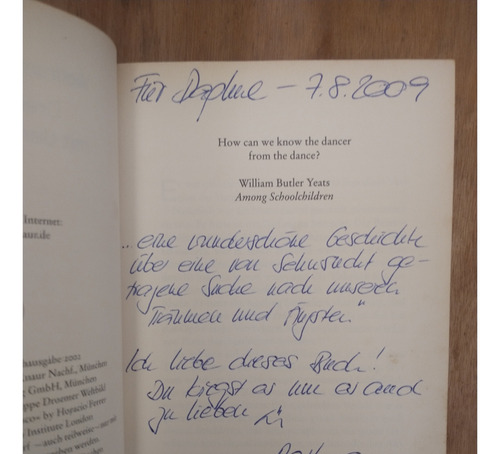 Für Daphne – 7.8.2009
How can we know the dancer
from the dance?
William Butler Yeats
Among Schoolchildren
...eine wunderschöne Geschichte
über eine von Sehnsucht ge-
tragene Suche nach unseren
Träumen und Ängsten"
Ich liebe dieses Buch!
Du kriegst es um es auch
zu lieben
Internet:
aur.de
hausgabe 2002
Knaur Nachf., München
GmbH, München
ppe Droemer Weltbild
oco« by Horacio Ferrer
Institute London
– auch teilweise – nur mit
ben werden.